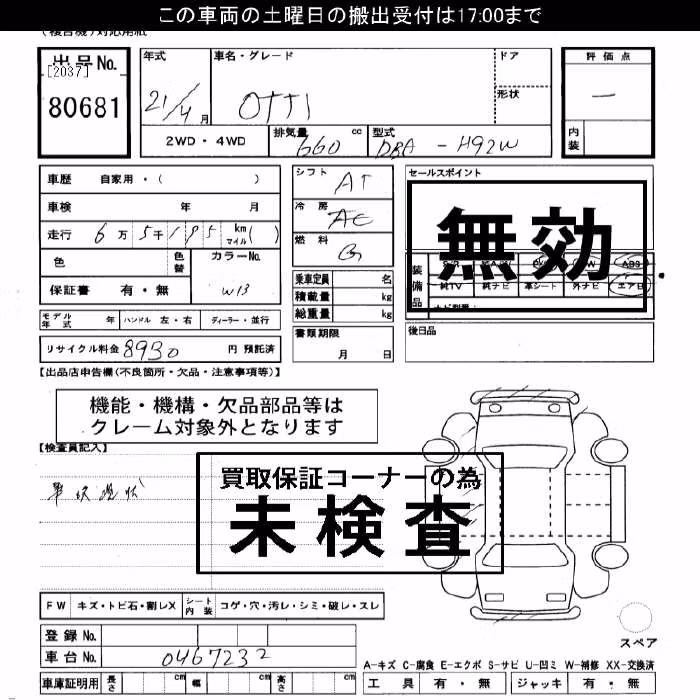 この車両の土曜日の搬出受付は17:00まで
(複合機)対応用紙
出品No. [2037] 80681
年式 21/4月
車名・グレード OTTI
ドア
形状
評価点 —
内装
2WD・4WD
排気量 660 cc
型式 DBA - H92W
車歴 自家用・( )
車検 年 月
走行 6万5千195 km マイル( )
色 色替 カラーNo. W13
保証書 有・無
シフト AT
冷房 AC
燃料 G
乗車定員 名
積載量 kg
総重量 kg
セールスポイント
無効
装備品
ABS
純TV 純ナビ 革シート 外ナビ エアB
モデル年式 年 ハンドル 左・右 ディーラー・並行
書類期限 月 日
後日品
リサイクル料金 8930 円 預託済
【出品店申告欄(不良箇所・欠品・注意事項等)】
機能・機構・欠品部品等は
クレーム対象外となります
【検査員記入】
買取保証コーナーの為
未検査
FW キズ・トビ石・割レX シート内装 コゲ・穴・汚レ・シミ・破レ・スレ
登録No.
車台No. 0467232
スペア
A-キズ C-腐食 E-エクボ S-サビ U-凹ミ W-補修 XX-交換済
車庫証明用 長さ cm 幅 cm 高さ cm
工具 有・無 ジャッキ 有・無